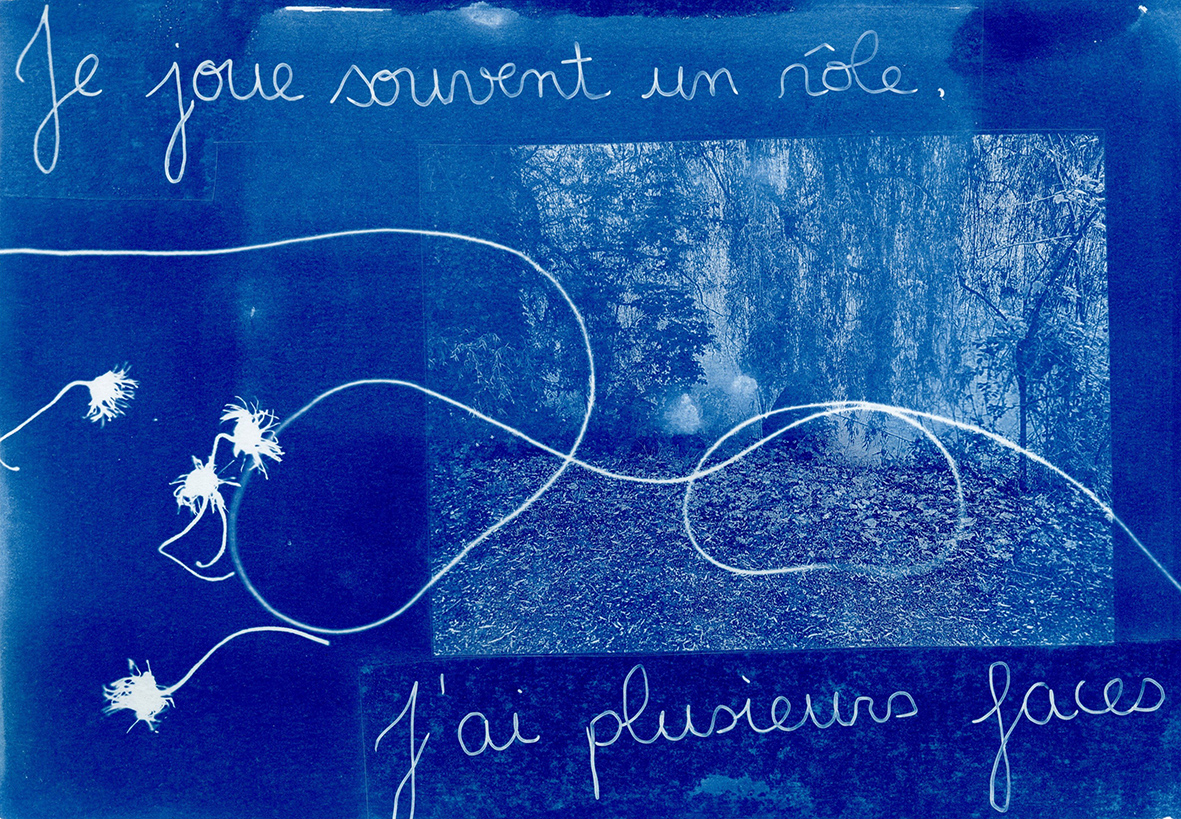 Je joue souvent un rôle.
J'ai plusieurs faces